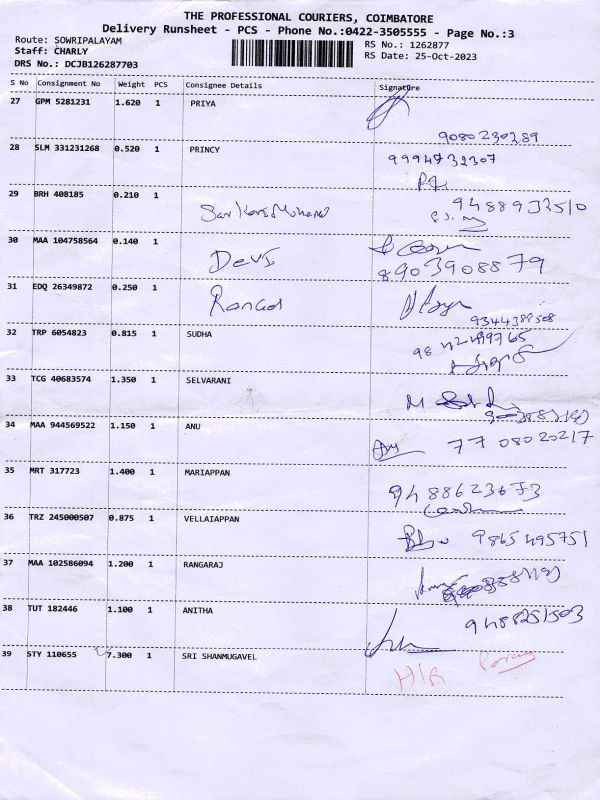 THE PROFESSIONAL COURIERS, COIMBATORE
Delivery Runsheet - PCS - Phone No.:0422-3505555 - Page No.:3
Route: SOWRIPALAYAM
Staff: CHARLY
DRS No.: DCJB126287703
RS No.: 1262877
RS Date: 25-Oct-2023
S No Consignment No Weight PCS Consignee Details Signature
27 GPM 5281231 1.620 1 PRIYA
9080230289
28 SLM 331231268 0.520 1 PRINCY
9994732307
29 BRH 408185 0.210 1
30 MAA 104758564 0.140 1 Devi
8903908879
31 EDQ 26349872 0.250 1
9344388508
32 TRP 6054823 0.815 1 SUDHA
33 TCG 40683574 1.350 1 SELVARANI
34 MAA 944569522 1.150 1 ANU
77 08020217
35 MRT 317723 1.400 1 MARIAPPAN
9488623673
36 TRZ 245000507 0.875 1 VELLAIAPPAN
9865495751
37 MAA 102586094 1.200 1 RANGARAJ
38 TUT 182446 1.100 1 ANITHA
9488251503
39 STY 110655 7.300 1 SRI SHANMUGAVEL